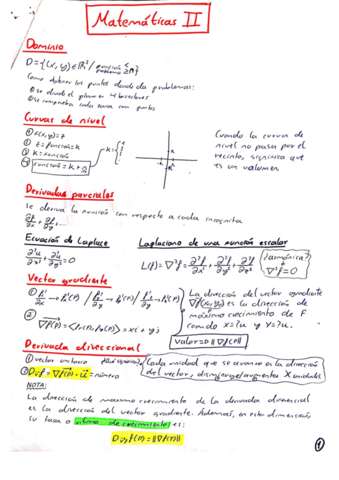 Matemáticas II
Dominio
D={(x,y)∈ℝ²/ función
problema
Como obtener los puntos donde da problemas:
①se divide el plano en 4 sectores
②se comprueba cada zona con puntos
Curvas de nivel
① f(x,y)=z
② z=función=k
③ k=función
④ función=k
k=
Cuando la curva de
nivel no pasa por el
recinto, significa que
es un volumen
Derivadas parciales
Se deriva la función con respecto a cada incógnita
∂f/∂x + ∂f/∂y ...
Ecuación de Laplace
∂²u/∂x² + ∂²u/∂y² = 0
Laplaciano de una función escalar
L(f)=∇²f= ∂²f/∂x² + ∂²f/∂y² + ∂²f
¿armónica?
∇²f=0
Vector gradiente
① f'/∂x → f'(P) / f'/∂y → f'(P) / f' → f'(P)
② ∇f(P)=<f'(P), f'(P)>=xi+yj
La dirección del vector gradiente
∇f(x,y) es la dirección de
máximo crecimiento de f
cuando x=?u y y=?u.
Valor=D||∇f(P)||
Derivada direccional
① vector unitario
② Dᵤf=∇f(P)·u=número
Cada unidad que se avance en la dirección
del vector, disminuye/aumenta X unidades
NOTA:
La dirección de máximo crecimiento de la derivada direccional
es la dirección del vector gradiente. Además, en esta dimensión
su tasa o ritmo de crecimiento es:
Dᵤf(P)=||∇f(P)||
1